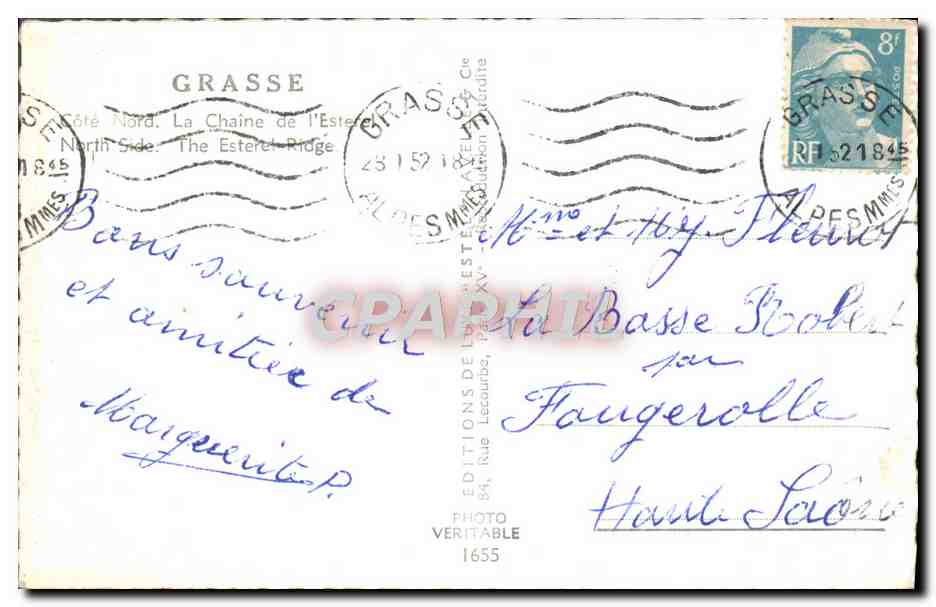 GRASSE
Côté Nord. La Chaîne de l'Esterel
North Side. The Esterel Ridge
GRASSE
28 1 52 18
ALPES MMES
8f
RF
GRASSE
1 52 18 45
ALPES MMES
S E
18 45
MMES
Bons souvenir
et amitiée de
Marguerite P.
EDITIONS DE L'
84, Rue Lecourbe, Paris XVe - Reproduction Interdite
PHOTO
VERITABLE
1655
CPARPHIL
Mme et Mr Fleurot
La Basse Robert
par
Fougerolle
Haute Saône